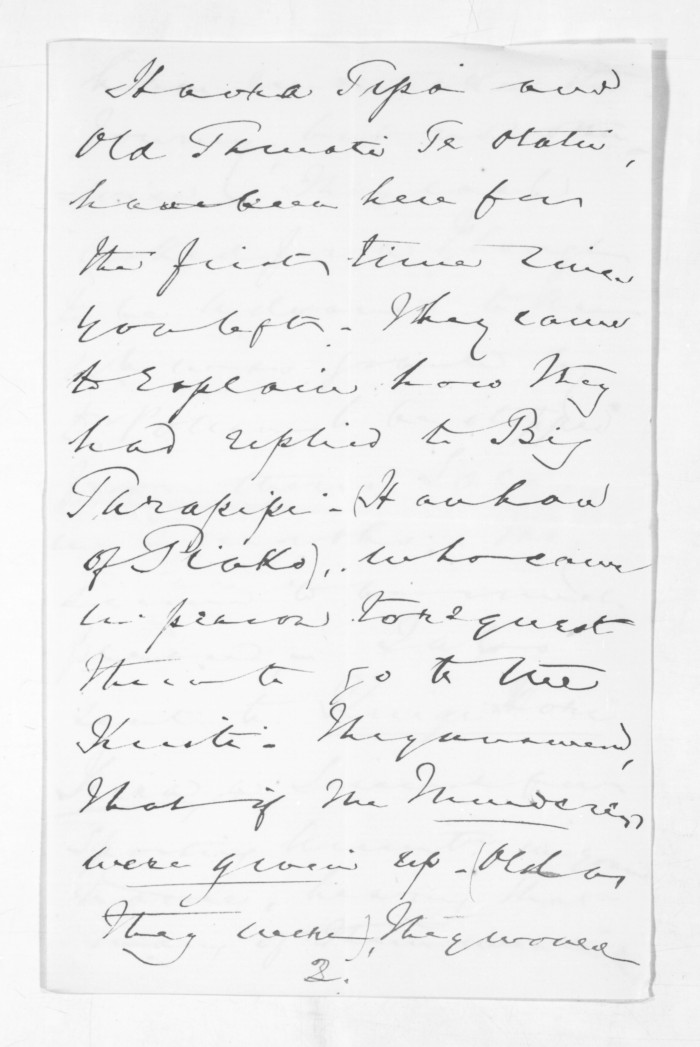 Haora Tipa and
Old Tamati Te Otatu,
have been here for
the first time since
you left - They came
to explain how they
had replied to Big
Tarapipi - (Hauhau
of Piako), who came
in person to request
them to go to the
They answered,
that if the Murderers
were given up - (Old as
they were), they would
2.